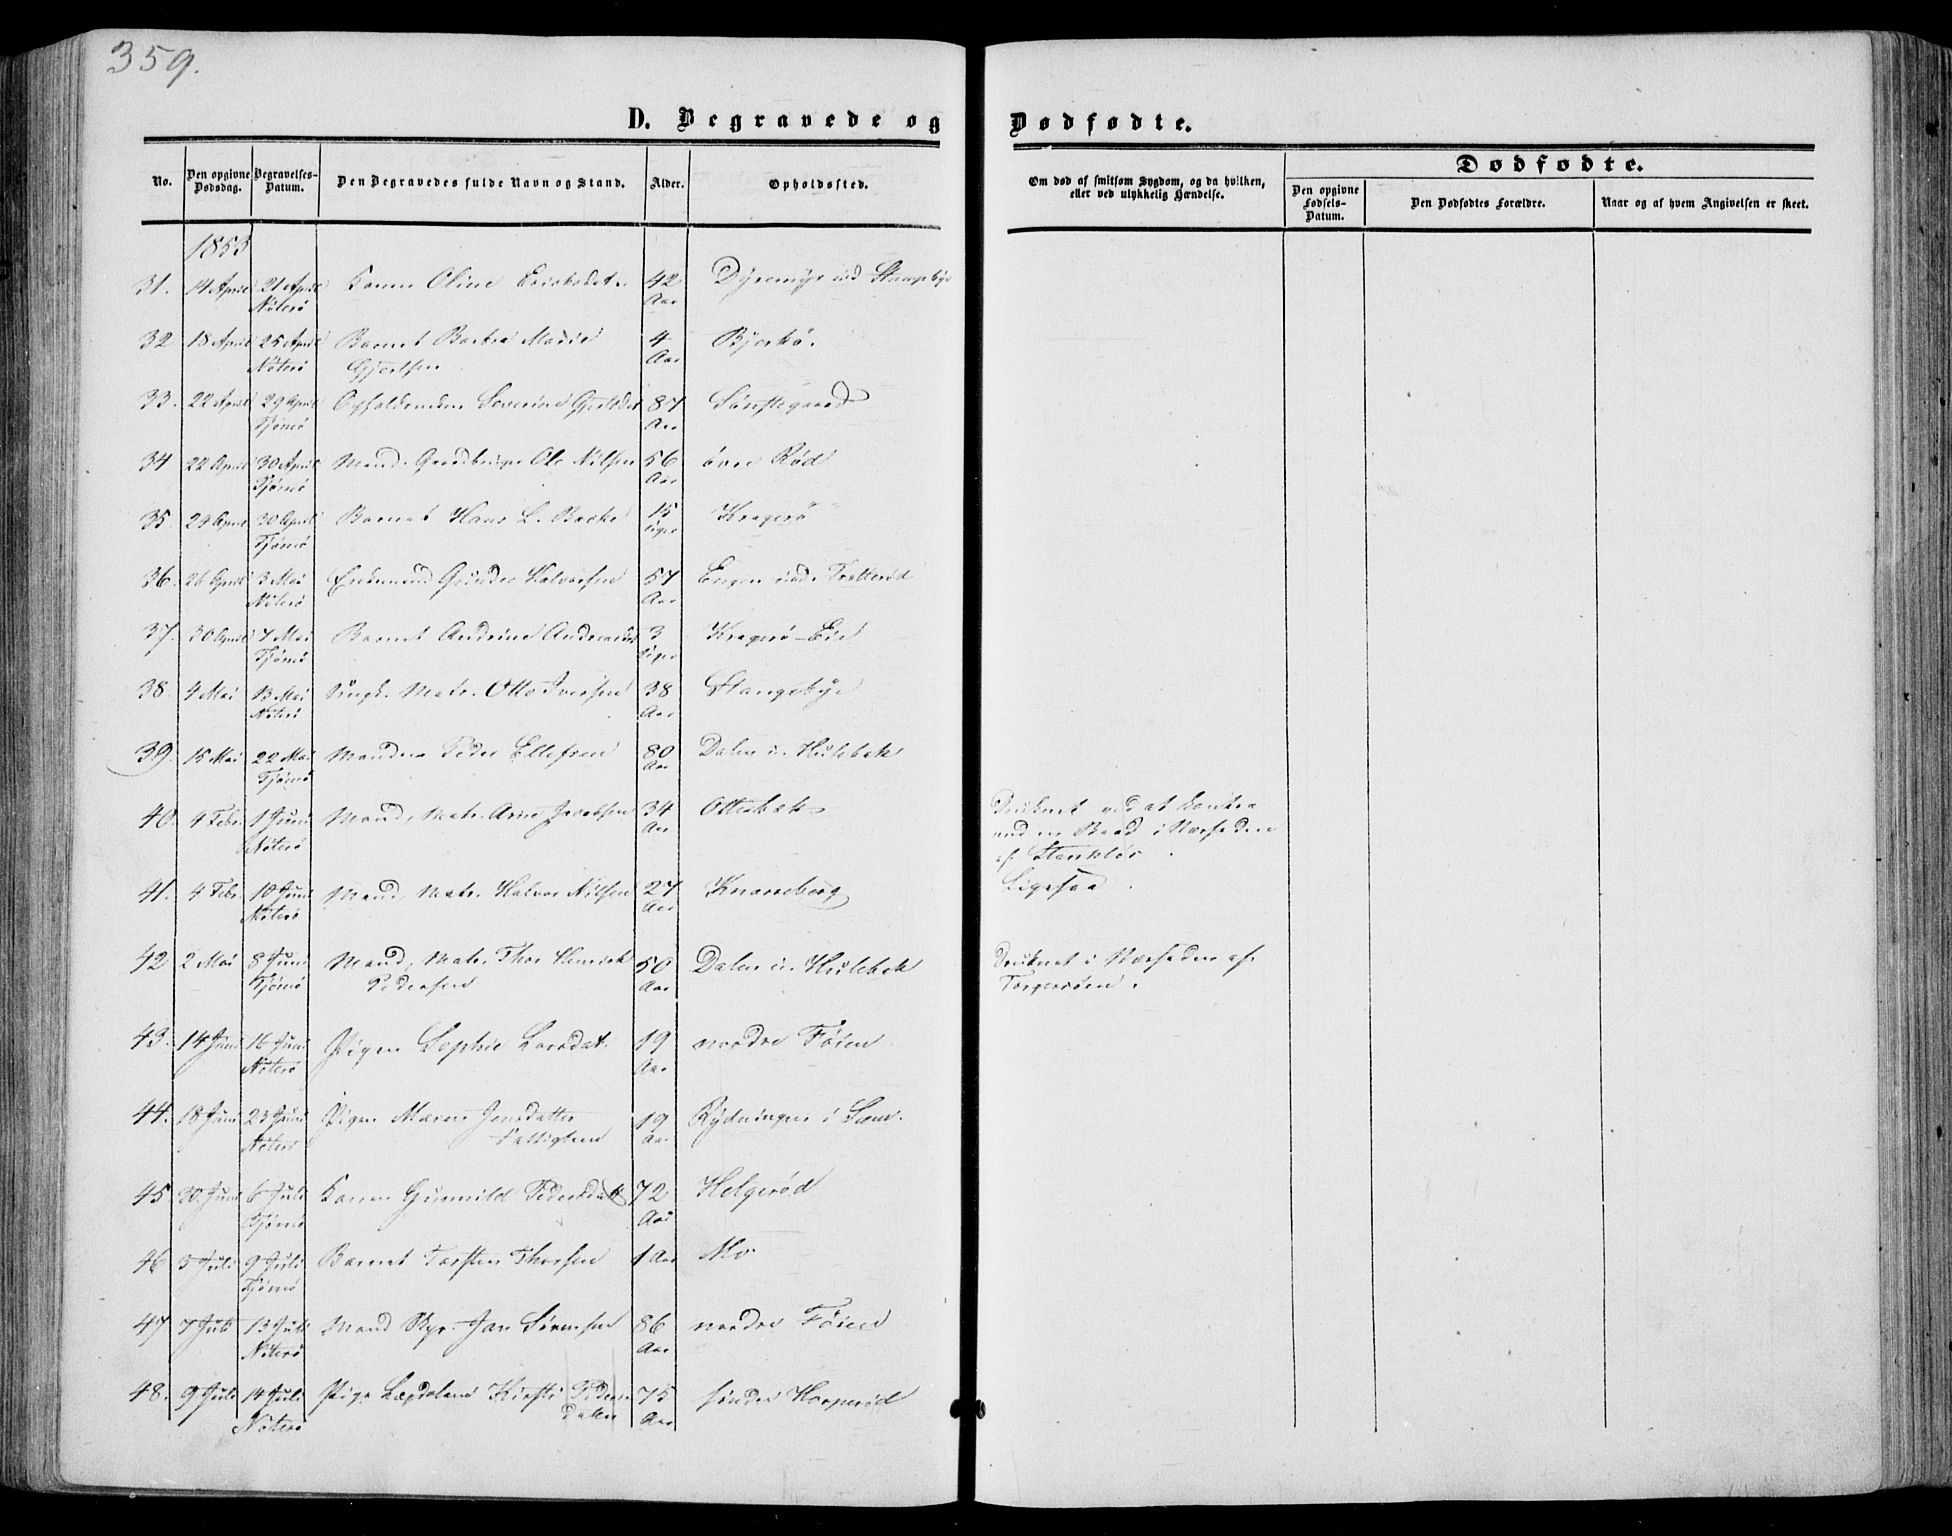 359.
D. Begravede og Dødfødte.
No. Den opgivne Dødsdag. Begravelses-Datum. Den Begravedes fulde Navn og Stand. Alder. Opholdssted.
Om død af smitsom Sygdom, og da hvilken, eller ved ulykkelig Hændelse.
Dødfødte.
Den opgivne Fødsels-Datum. Den Dødfødtes Forældre. Naar og af hvem Angivelsen er skeet.
1853
31. 14 April 21 April Konen Oline Ericksdat. 42 Dyremyr und Stangebye
Nøterø Aar
32 18 April 25 April Barnet Marie 4 Bjerkø.
Nøterø Gjertsen Aar
33. 22 April 29 April Severine 87
Tjømø Aar
34 22 April 30 April Mand. Gaardbruger Ole Nilsen 56 øvre Rød
Tjømø Aar
35 24 April 30 April Barnet Hans L. Bache 15 Kragerø
Tjømø Uger
36. 26 April 3 Mai Enkemand Gunder Halvorsen 57 Engen und. Trællerød
Nøterø Aar
37. 30 April 7 Mai Barnet Andrine 3 Kragerø-Eie
Tjømø Uger
38. 4 Mai 13 Mai Ungk. Matr. Otto Iversen 38 Stangebye
Nøterø Aar
39. 15 Mai 22 Mai Manden Peder Ellefsen 80 Dalen u. Hulebak
Tjømø Aar
40. 4 Febr. 1 Juni Mand, Matr. Arne Jacobsen 34 Otterbæk Druknet ved at kantre
Nøterø Aar med en Baad i Nærheden
af
41. 4 Febr. 10 Juni Mand Matr. Halvor Nilsen 27 Knarreberg Ligesaa.
Nøterø Aar
42 2 Mai 8 Juni Mand, Matr. Thor Henrik 50 Dalen u. Hulebak Druknet i Nærheden af
Tjømø Pedersen Aar Torgersøen.
43. 14 Juni 16 Juni Pigen Sophie Larsdat. 19 nordre Føien
Nøterø Aar
44. 18 Juni 23 Juni Pigen Maren Jensdatter 19 Rydningen i Sem.
Nøterø Fattiglem Aar
45. 30 Juni 6 Juli Konen Gunnild Pedersdatt 72 Helgerød
Tjømø Aar
46 5 Juli 9 Juli Barnet Torsten Thorsen 1 Aar Mo
Tjømø
47 7 Juli 13 Juli Mand Sørensen 86 nordre Føien
Nøterø Aar
48. 9 Juli 14 Juli Pige Lægdslem Kirsti Peders 75 søndre
Nøterø datter Aar